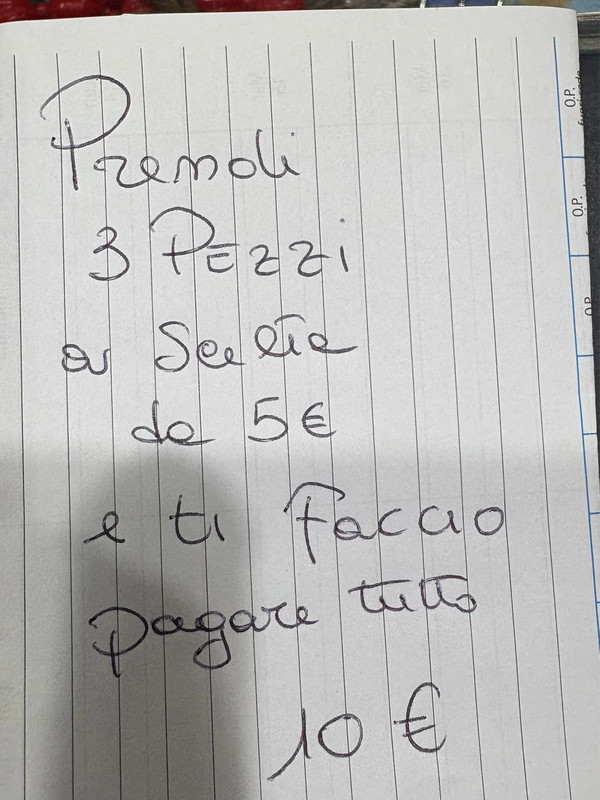 Prendi
3 PEZZI
a Scelta
da 5€
e ti Faccio
pagare tutto
10 €
O.P.
O.P.
O.P.